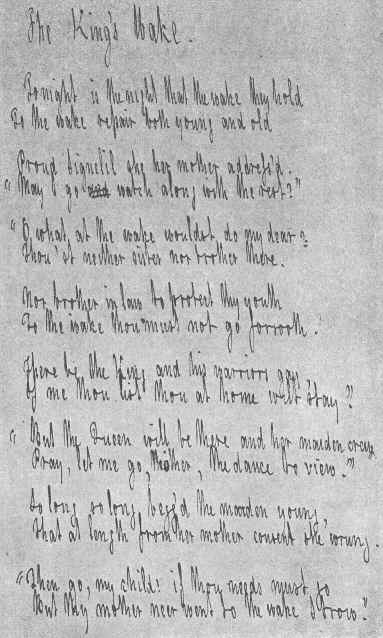 The King's Wake.
Tonight is the night that the wake they hold
To the wake repair both young and old
Proud Signelil she her mother address'd.
"May I go watch along with the rest?"
"O what at the wake wouldst do my dear?
Thou'st neither sister nor brother there.
Nor brother in law to protect thy youth
To the wake thou must not go forsooth.
There be the King and his warriors gay
If me thou list thou at home wilt stay?
"But the Queen will be there and her maiden crew
Pray, let me go, Mother, the dance to view."
So long so long begg'd the maiden young,
That at length from her mother consent she wrung.
"Then go, my child! if thou needs must go
But thy mother ne'er went to the wake I trow."